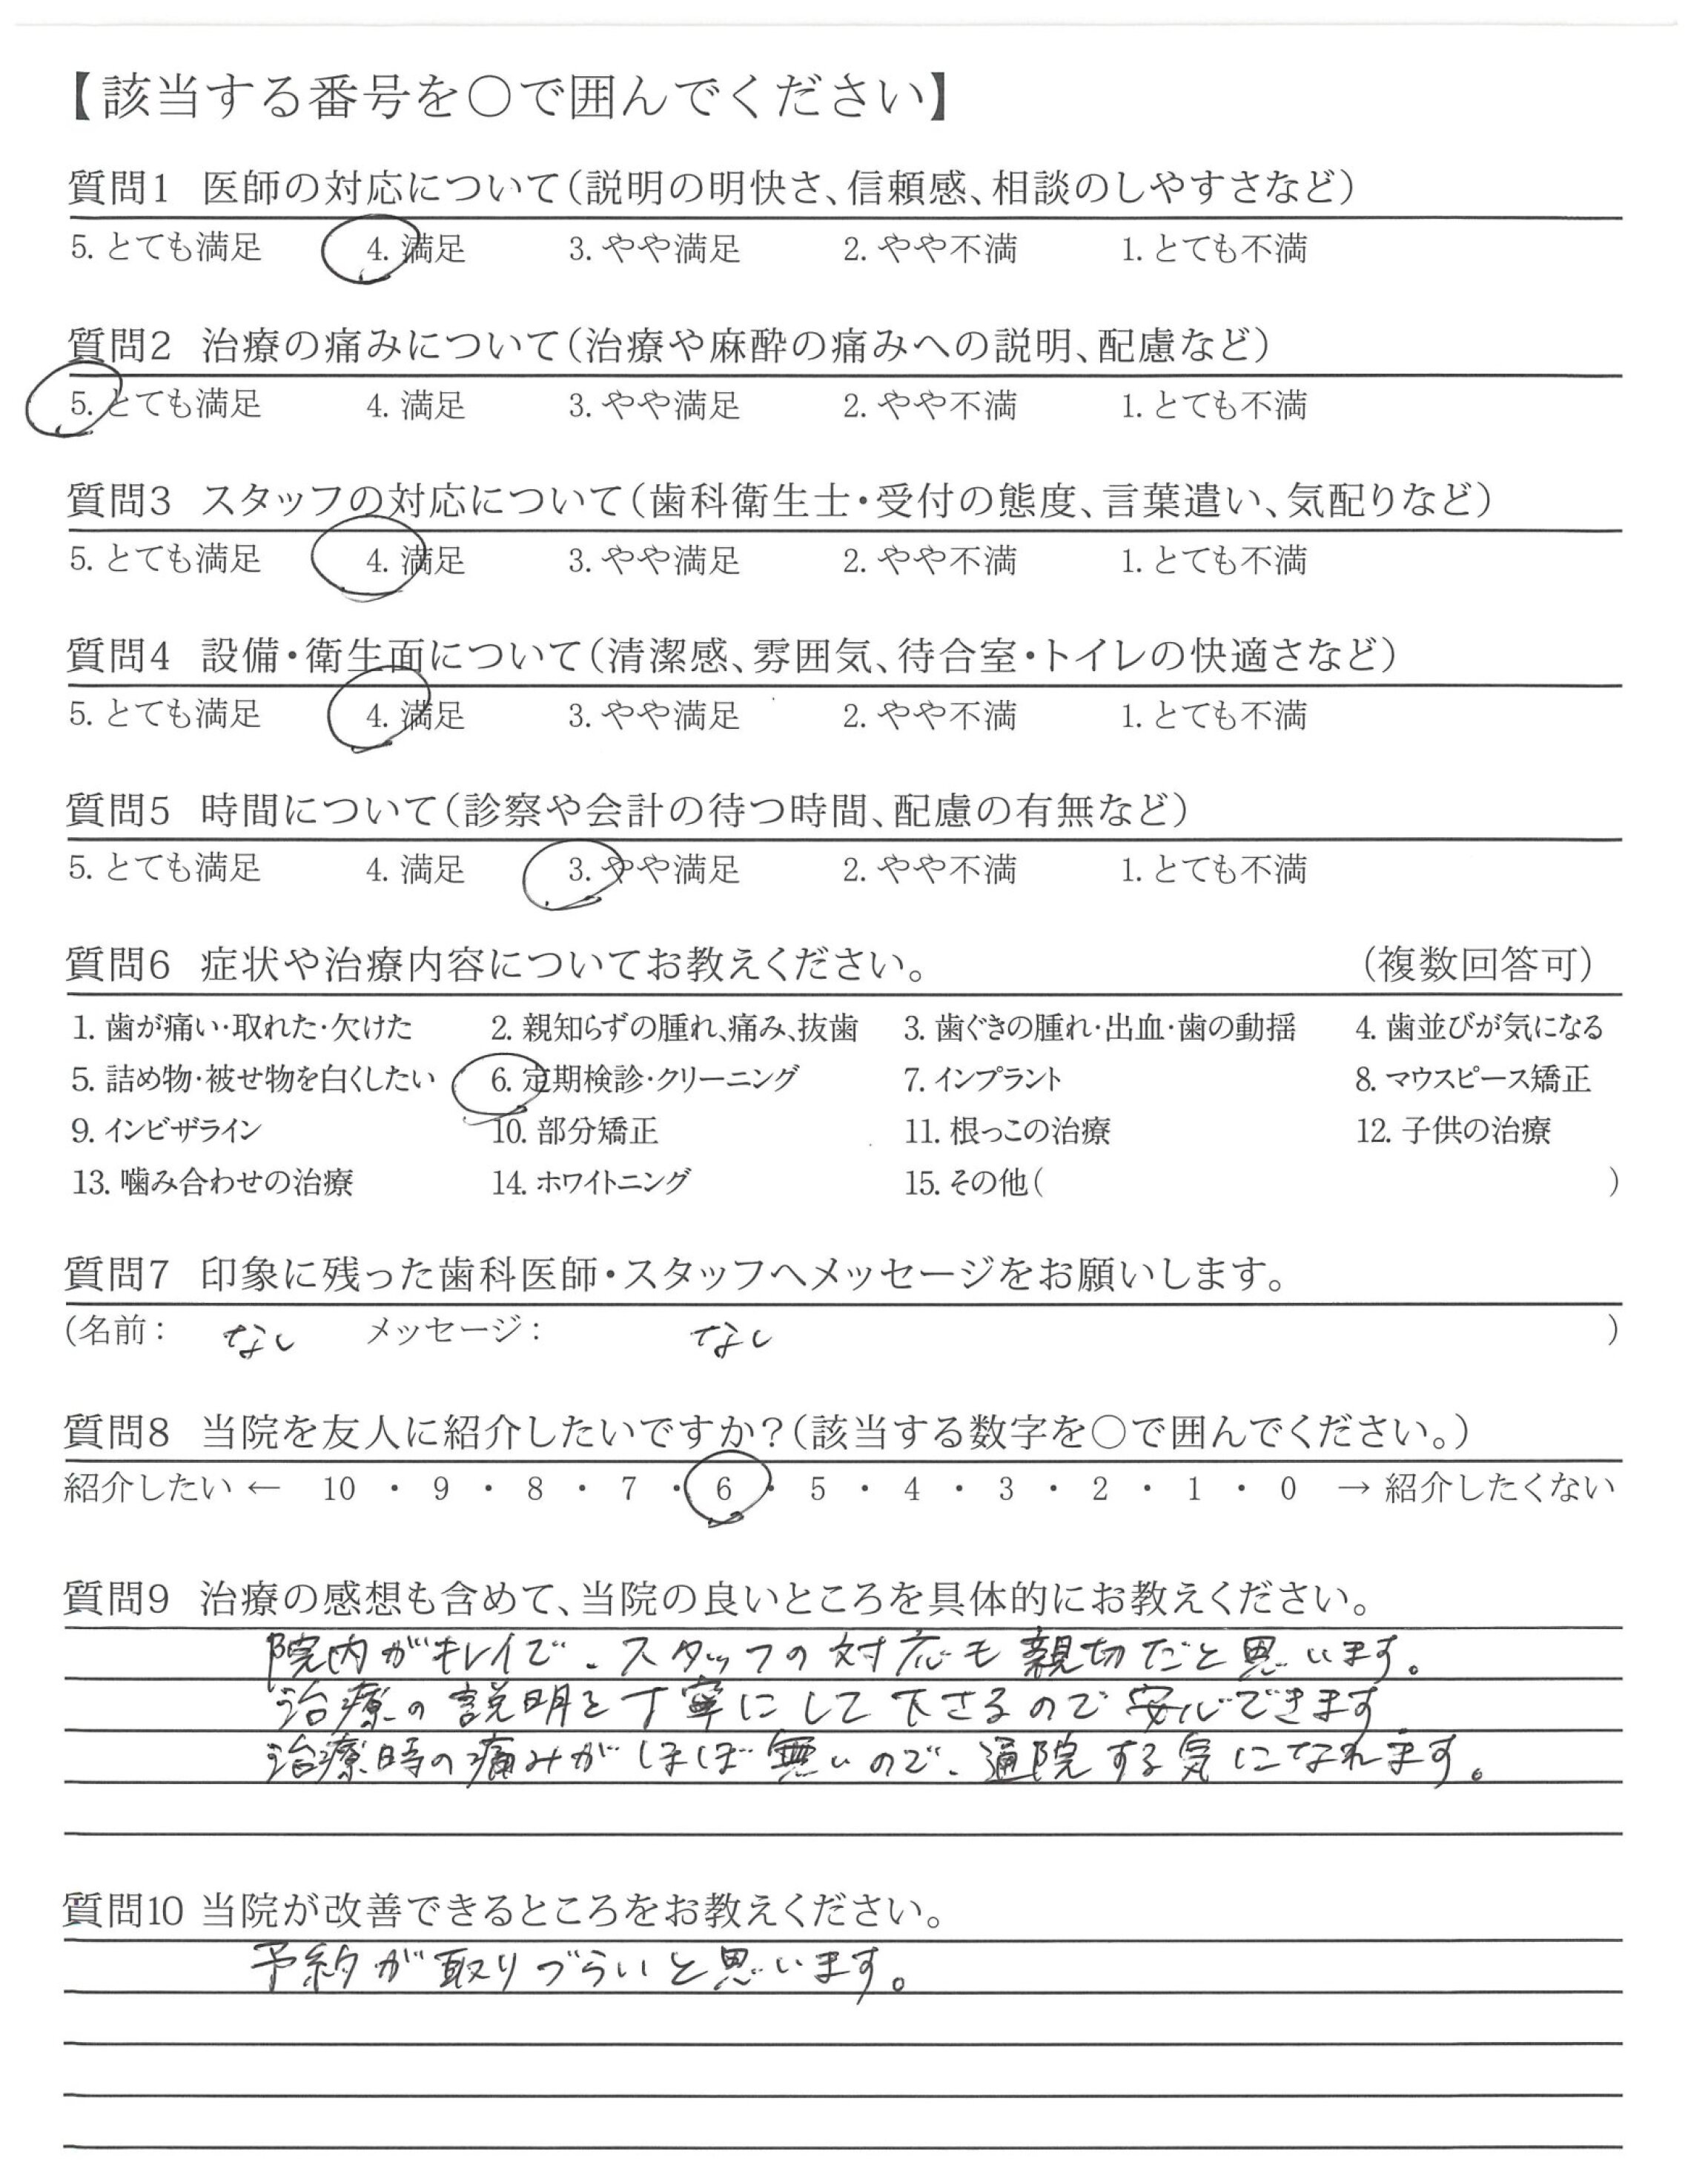 【該当する番号を○で囲んでください】
質問1 医師の対応について(説明の明快さ、信頼感、相談のしやすさなど)
5. とても満足 4. 満足 3. やや満足 2. やや不満 1. とても不満
質問2 治療の痛みについて(治療や麻酔の痛みへの説明、配慮など)
5. とても満足 4. 満足 3. やや満足 2. やや不満 1. とても不満
質問3 スタッフの対応について(歯科衛生士・受付の態度、言葉遣い、気配りなど)
5. とても満足 4. 満足 3. やや満足 2. やや不満 1. とても不満
質問4 設備・衛生面について(清潔感、雰囲気、待合室・トイレの快適さなど)
5. とても満足 4. 満足 3. やや満足 2. やや不満 1. とても不満
質問5 時間について(診察や会計の待つ時間、配慮の有無など)
5. とても満足 4. 満足 3. やや満足 2. やや不満 1. とても不満
質問6 症状や治療内容についてお教えください。 (複数回答可)
1. 歯が痛い・取れた・欠けた 2. 親知らずの腫れ、痛み、抜歯 3. 歯ぐきの腫れ・出血・歯の動揺 4. 歯並びが気になる
5. 詰め物・被せ物を白くしたい 6. 定期検診・クリーニング 7. インプラント 8. マウスピース矯正
9. インビザライン 10. 部分矯正 11. 根っこの治療 12. 子供の治療
13. 噛み合わせの治療 14. ホワイトニング 15. その他( )
質問7 印象に残った歯科医師・スタッフへメッセージをお願いします。
(名前: なし メッセージ: なし )
質問8 当院を友人に紹介したいですか?(該当する数字を○で囲んでください。)
紹介したい ← 10 ・ 9 ・ 8 ・ 7 ・ 6 ・ 5 ・ 4 ・ 3 ・ 2 ・ 1 ・ 0 → 紹介したくない
質問9 治療の感想も含めて、当院の良いところを具体的にお教えください。
院内がキレイで、スタッフの対応も親切だと思います。
治療の説明を丁寧にして下さるので安心できます
治療時の痛みがほぼ無いので、通院する気になれます。
質問10 当院が改善できるところをお教えください。
予約が取りづらいと思います。